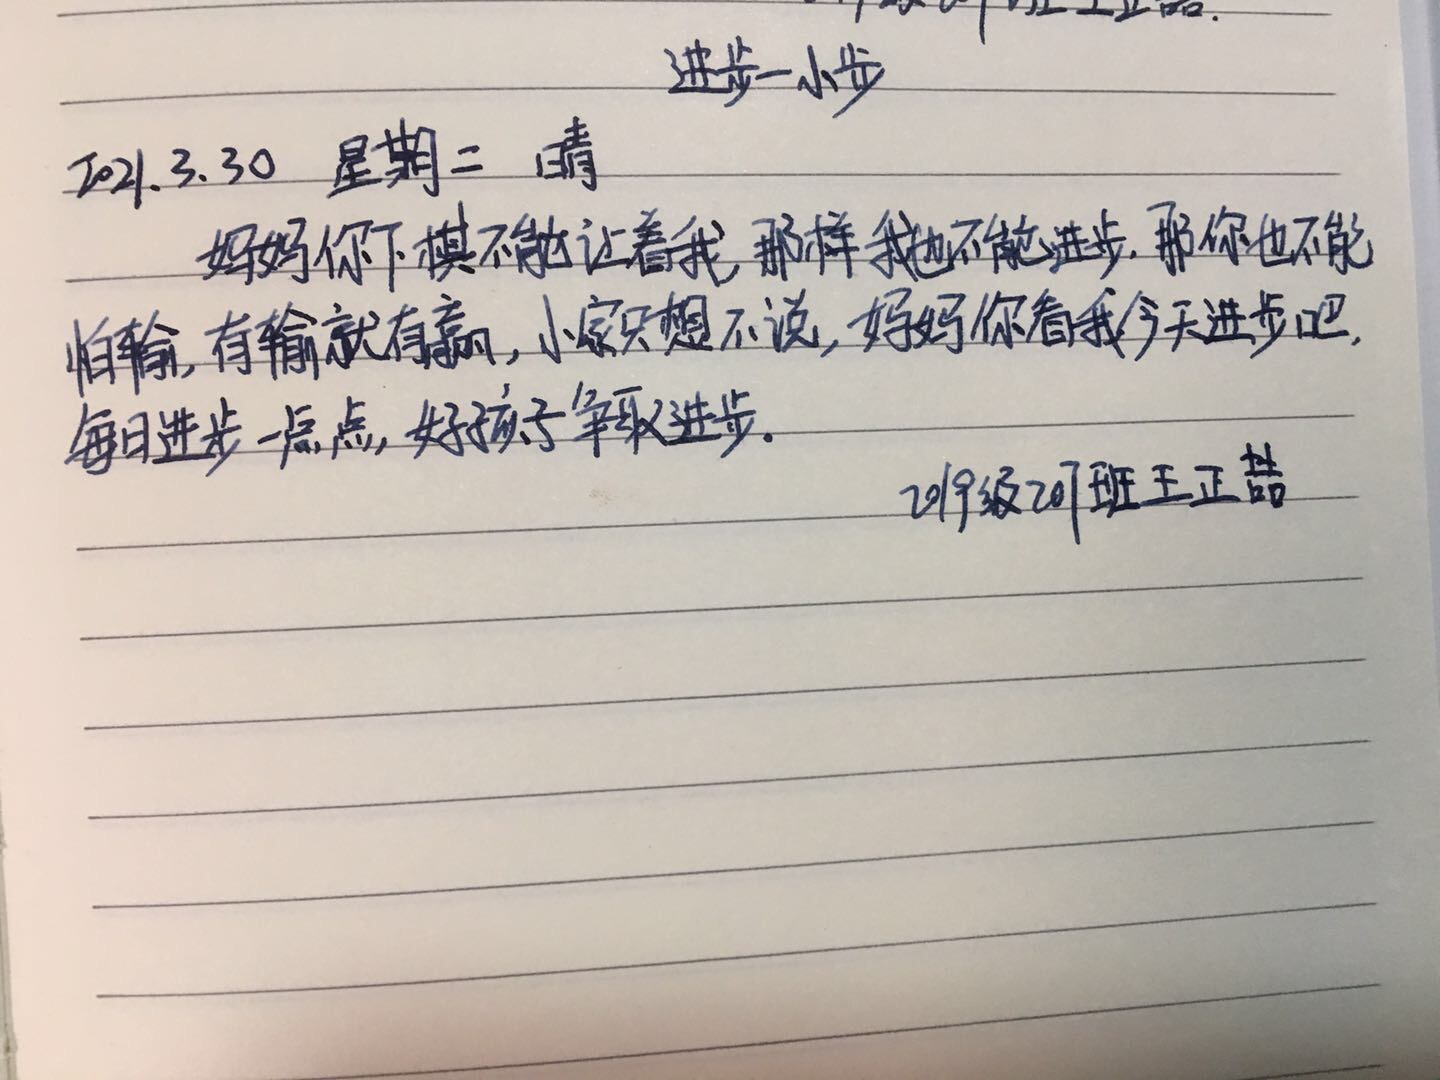 2019级207班王正喆.
进步一小步
2021.3.30 星期二 晴
妈妈你下棋不能让着我,那样我也不能进步.那你也不能
怕输,有输就有赢,小家只想不说,妈妈你看我今天进步吧,
每日进步一点点,好孩子争取进步.
2019级207班王正喆